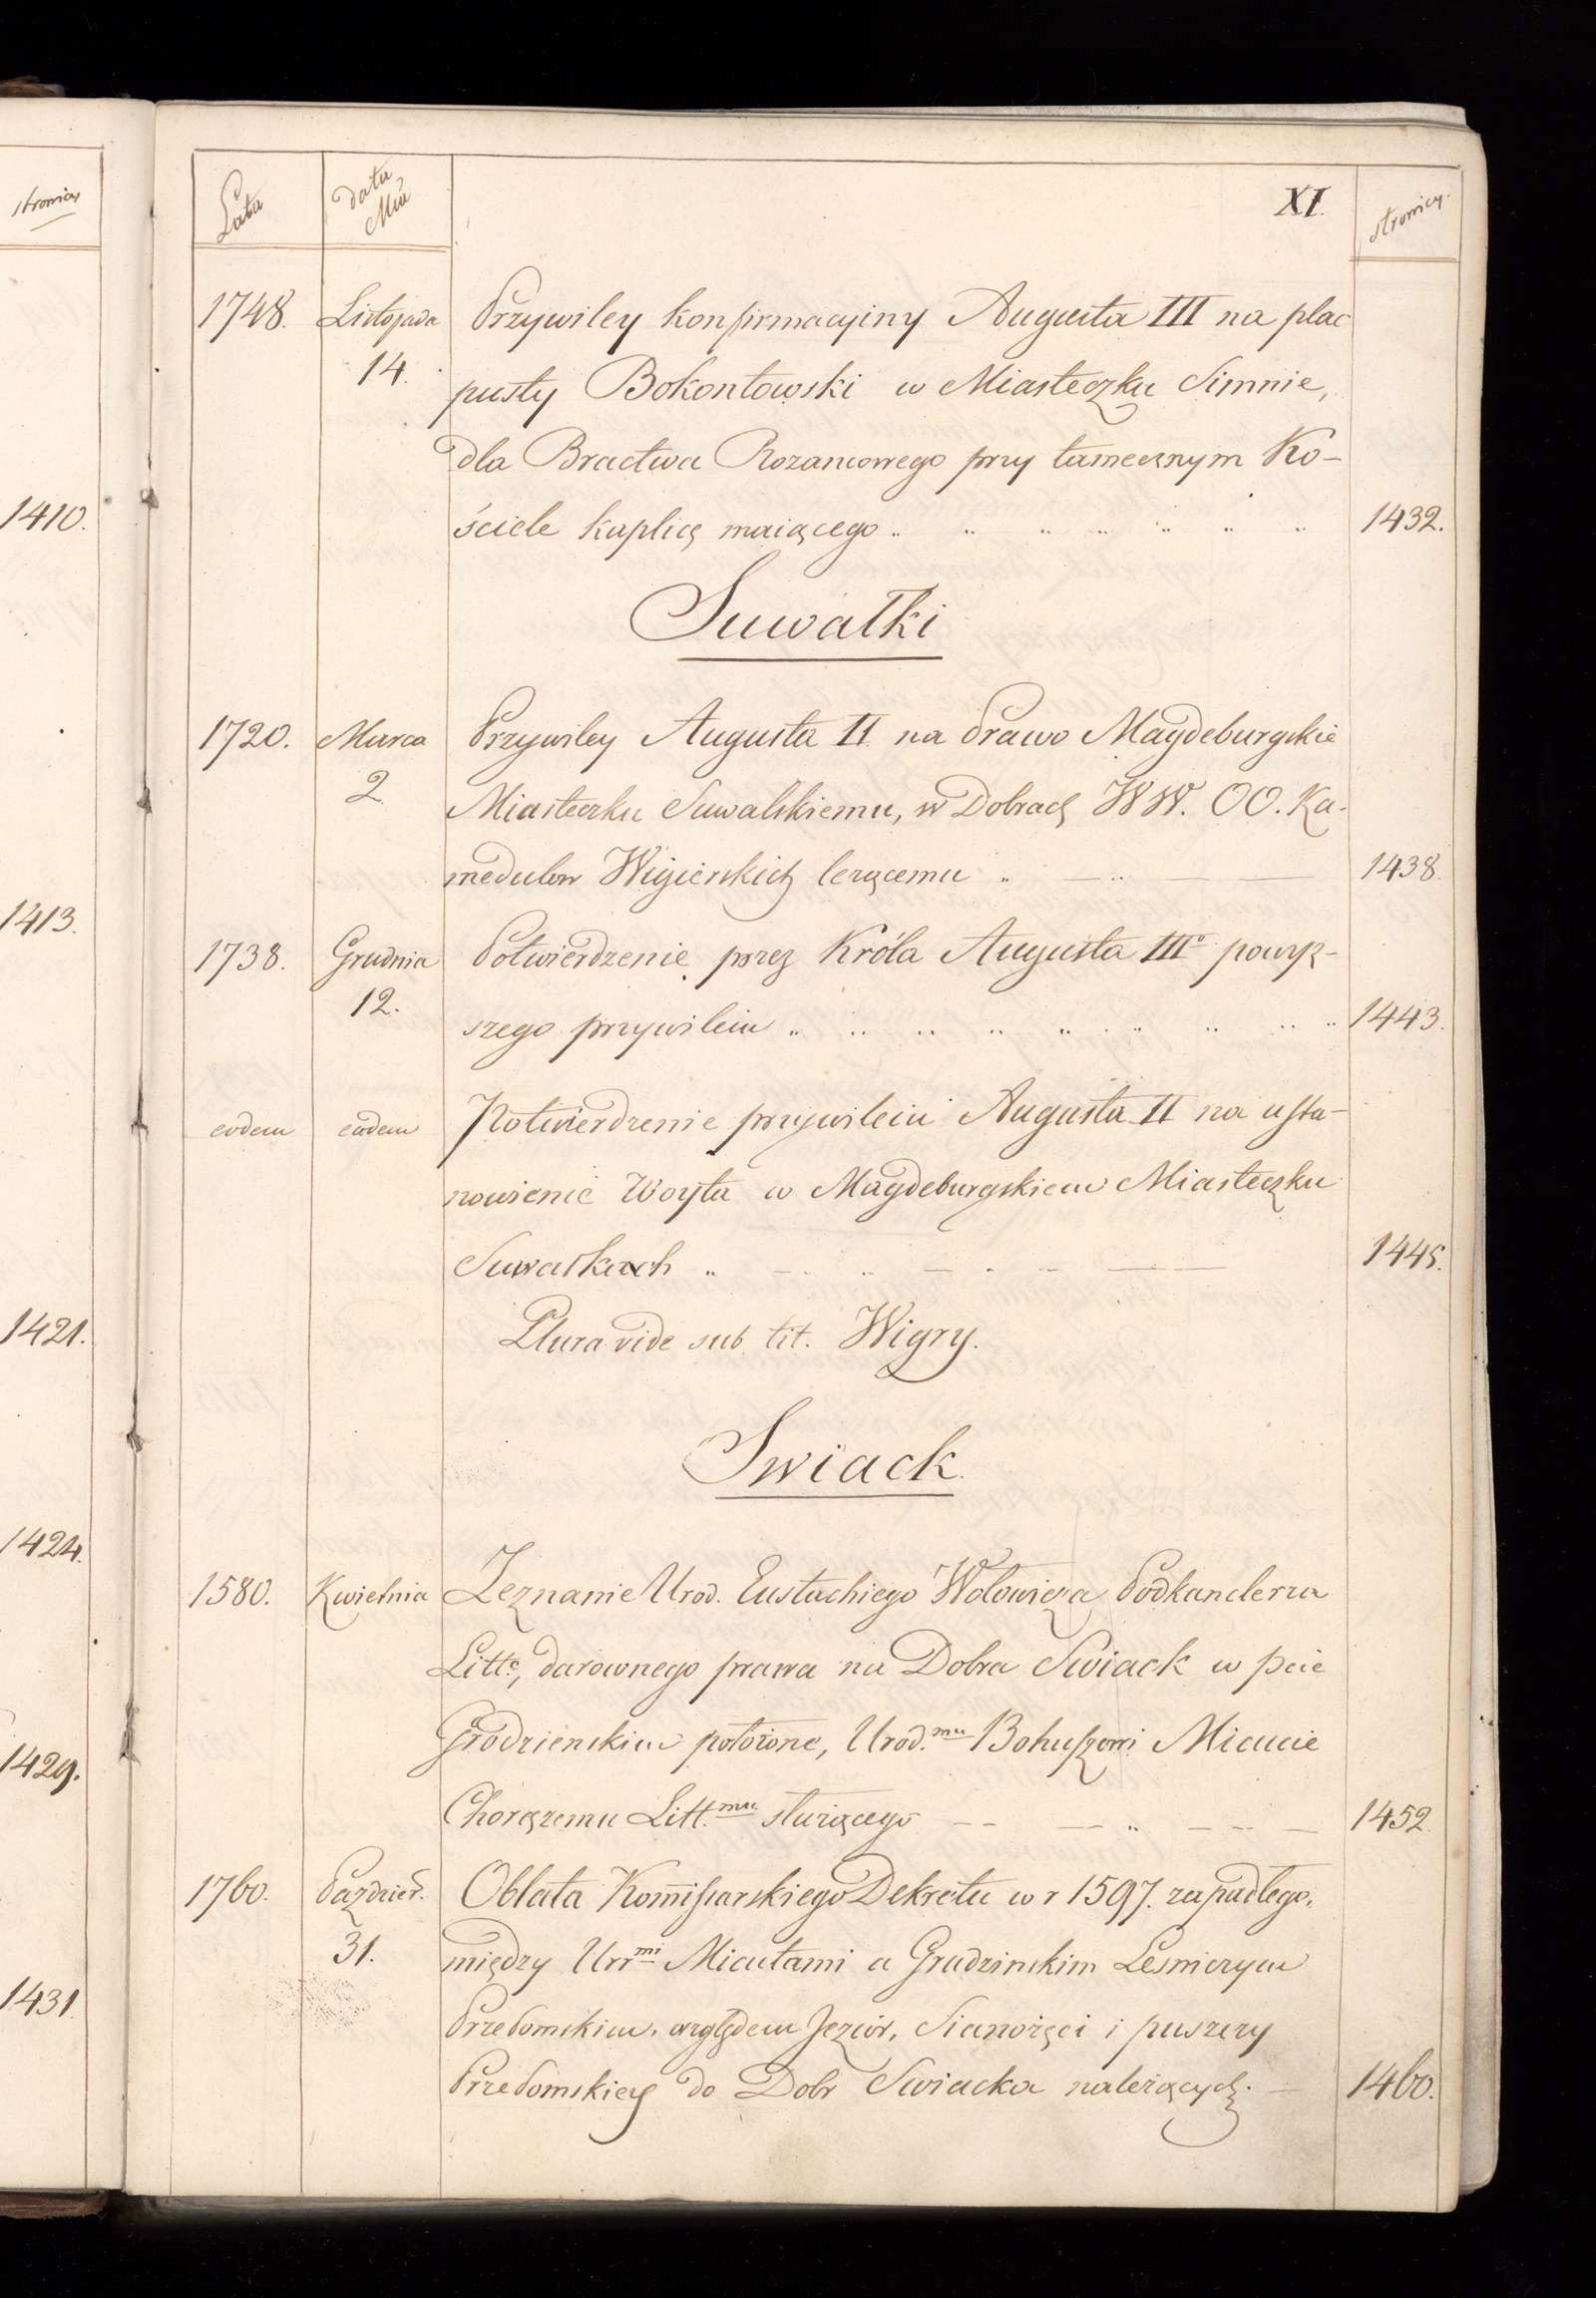 stronica
1410.
1413.
1421.
1424.
1429.
1431.
Lata
data
Mca
XI.
stronica.
1748. Listopada Przywiley konfirmacyiny Augusta III na plac
14. pusty Bokontowski w Miasteczku Simnie,
dla Bractwa Rozancowego przy tamecznym Ko-
ściele kaplicę maiącego .. .. .. .. .. .. .. 1432.
Suwałki
1720. Marca Przywiley Augusta II na Prawo Magdeburgskie
2 Miasteczku Suwalskiemu, w Dobrach WW. OO. Ka-
medulow Wigierskich lezącemu .. — .. — — 1438.
1738. Grudnia Potwierdzenie przez Króla Augusta IIIo powyż-
12. szego przywileiu .. .. .. .. .. .. .. .. .. 1443.
eodem eodem Potwierdzenie przywileiu Augusta II na usta-
nowienie Woyta w Magdeburgskiem Miasteczku
Suwałkach .. — .. — .. — — 1445.
Plura vide sub tit. Wigry.
Swiack.
1580. Kwietnia Zeznanie Urod. Eustachiego Wołowicza Podkanclerza
Litto, darownego prawa na Dobra Swiack w pcie
Grodzienskim położone, Urod.mu Bohuszowi Micucie
Chorązemu Litt.mu służącego — — .. — — 1452.
1760. Pazdzier. Oblata Kommissarskiego Dekretu w r 1597. zapadłego,
31. między Urrmi Micutami a Grudzinskim Lesniczym
Przełomskim, względem Jezior, Sianożęci i puszczy
Przełomskiey do Dobr Swiacka należących. — 1460.